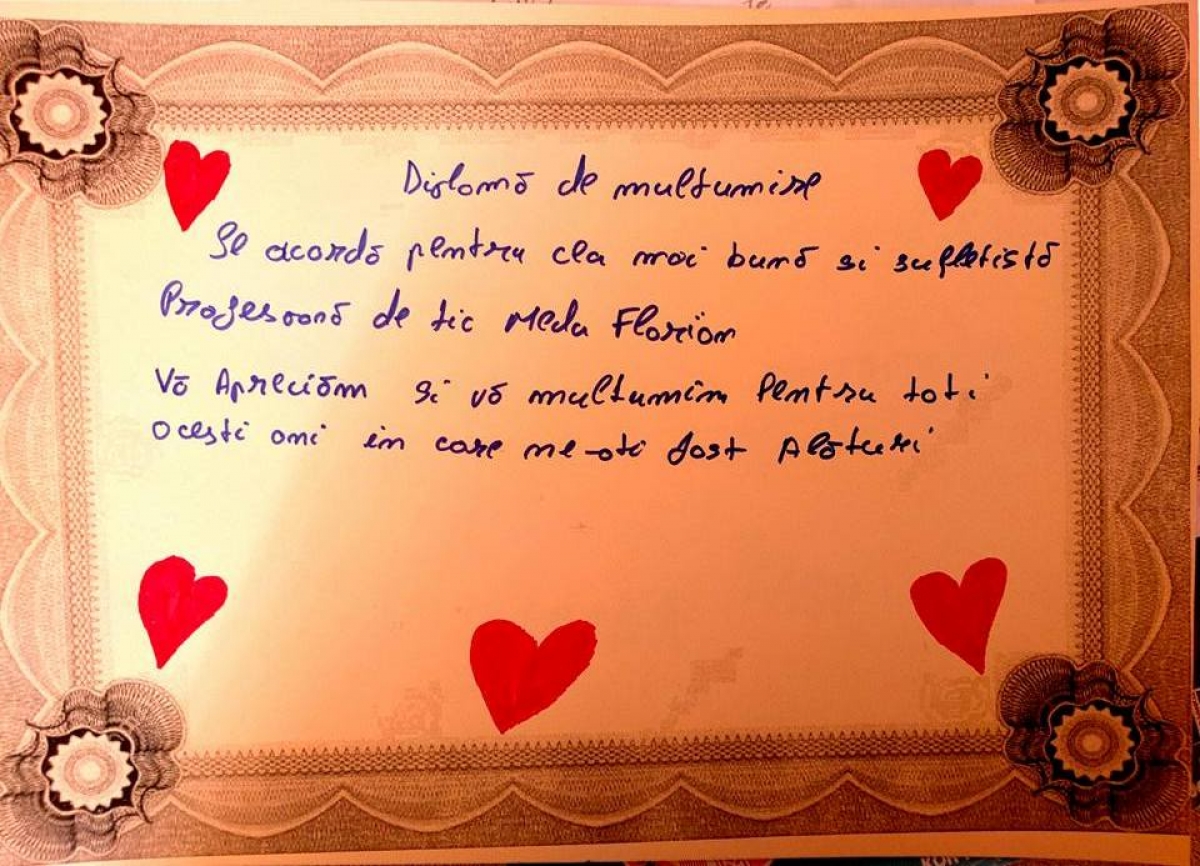 Diplomă de multumire
Se acordă pentru cea mai bună si sufletistă
Profesoară de tic Meda Florian
Vă Apreciăm si vă multumim Pentru toti
acesti ani in care ne-ati fost Alături